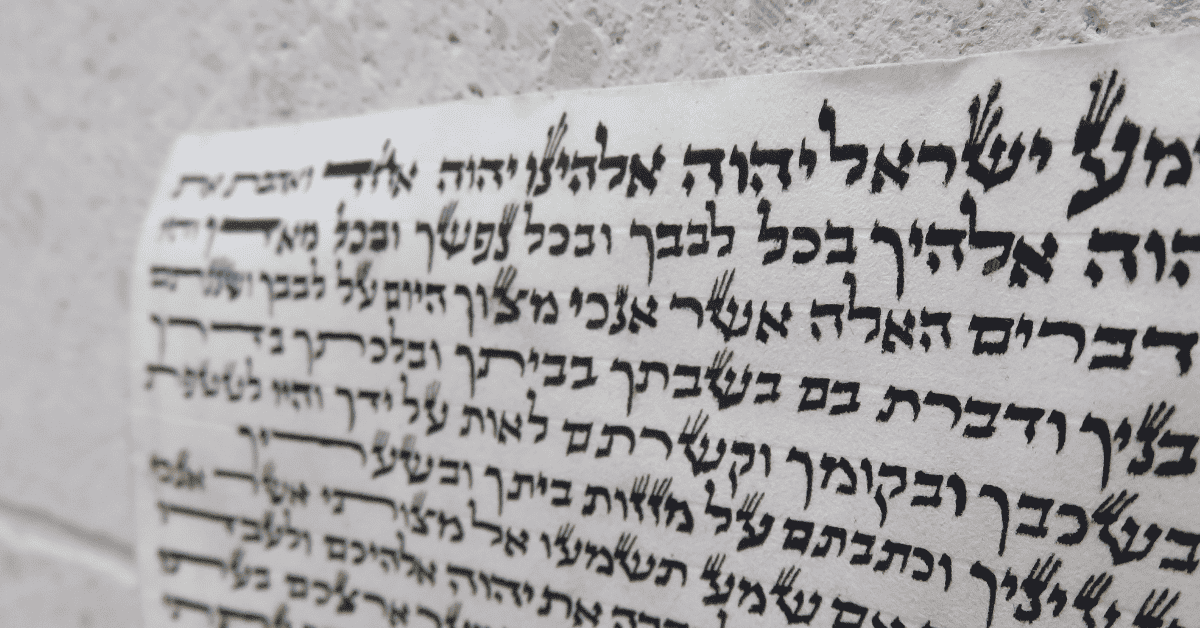 מע ישראל יהוה אלהינו יהוה אחד ואהבת את
הוה אלהיך בכל לבבך ובכל נפשך ובכל מאדך והיו
דברים האלה אשר אנכי מצוך היום על לבבך ושננתם
בניך ודברת בם בשבתך בביתך ובלכתך בדרך
בשכבך ובקומך וקשרתם לאות על ידך והיו לטטפת
עיניך וכתבתם על מזזות ביתך ובשעריך
אם שמע תשמעו אל מצותי אשר אנכי
את יהוה אלהיכם ולעבדו
ארצכם בעתו